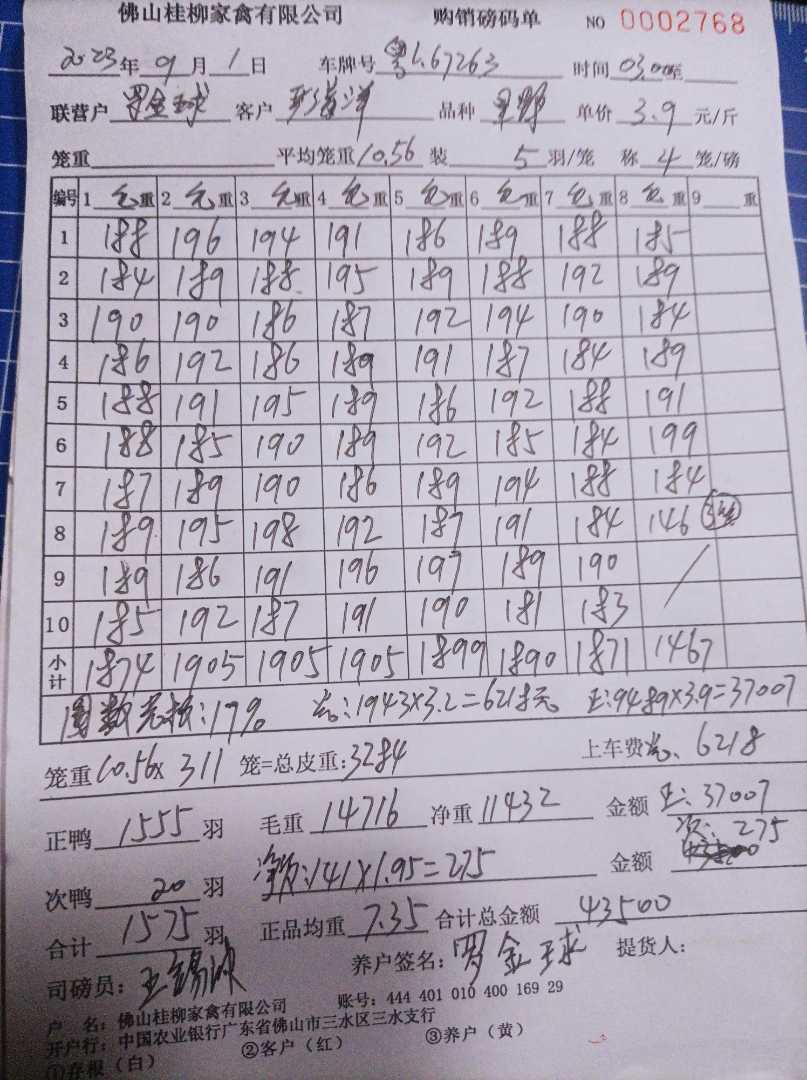 佛山桂柳家禽有限公司 购销磅码单 NO 0002768
2023年 9 月 1 日 车牌号 粤L67263 时间 03.00至
联营户 罗金球 客户 单价 3.9 元/斤 品种
笼重 平均笼重 10.56 装 5 羽/笼 称 4 笼/磅
编号 1 毛重 2 毛重 3 毛重 4 毛重 5 毛重 6 毛重 7 毛重 8 毛重 9 重
1 188 196 194 191 186 189 188 185
2 184 189 188 195 189 188 192 189
3 190 190 186 187 192 194 190 184
4 186 192 186 189 191 187 184 189
5 188 191 195 189 186 192 188 191
6 188 185 190 189 192 185 184 199
7 187 189 190 186 189 194 188 184
8 189 195 198 192 187 191 184 146
9 189 186 191 196 197 189 190 /
10 185 192 187 191 190 181 183
小计 1874 1905 1905 1905 1899 1890 1871 1467
:17% :1943×3.2=6218元 正:9489×3.9=37007
笼重 10.56× 311 笼=总皮重:3284 上车费 6218
正鸭 1555 羽 毛重 14716 净重 11432 金额 正:37007
次:275
次鸭 20 羽 :141×1.95=275 金额
合计 1575 羽 正品均重 7.35 合计总金额 43500
司磅员: 养户签名:罗金球 提货人:
户 名:佛山桂柳家禽有限公司 账号:444 401 010 400 169 29
开户行:中国农业银行广东省佛山市三水区三水支行
①存根(白) ②客户(红) ③养户(黄)